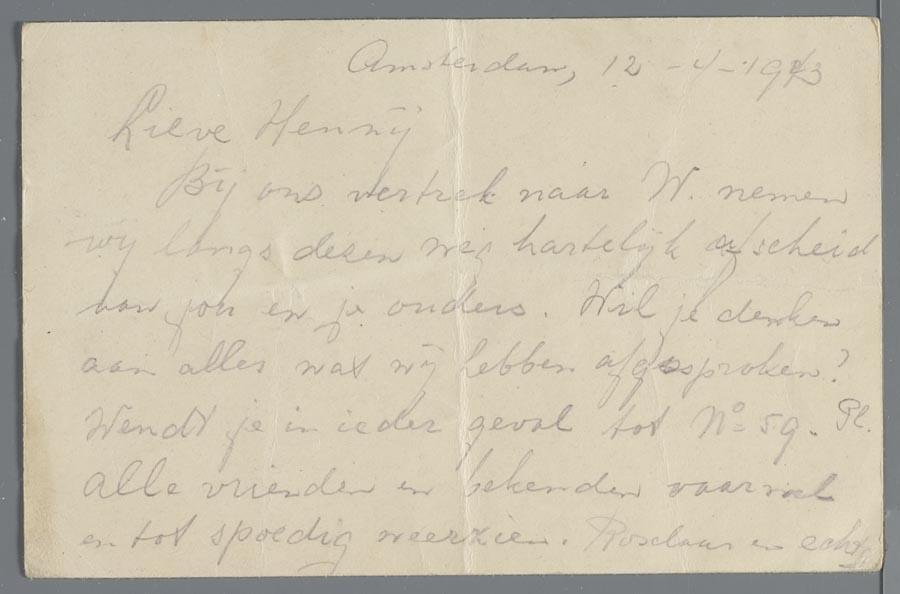 Amsterdam, 12-4-1943
Lieve Henny
Bij ons vertrek naar W. nemen
wij langs dezen weg hartelijk afscheid
van jou en je ouders. Wil je denken
aan alles wat wij hebben afgesproken?
Wendt je in ieder geval tot No 59. Pl.
Alle vrienden en bekenden vaarwel
en tot spoedig weerzien. Roselaar en echtg